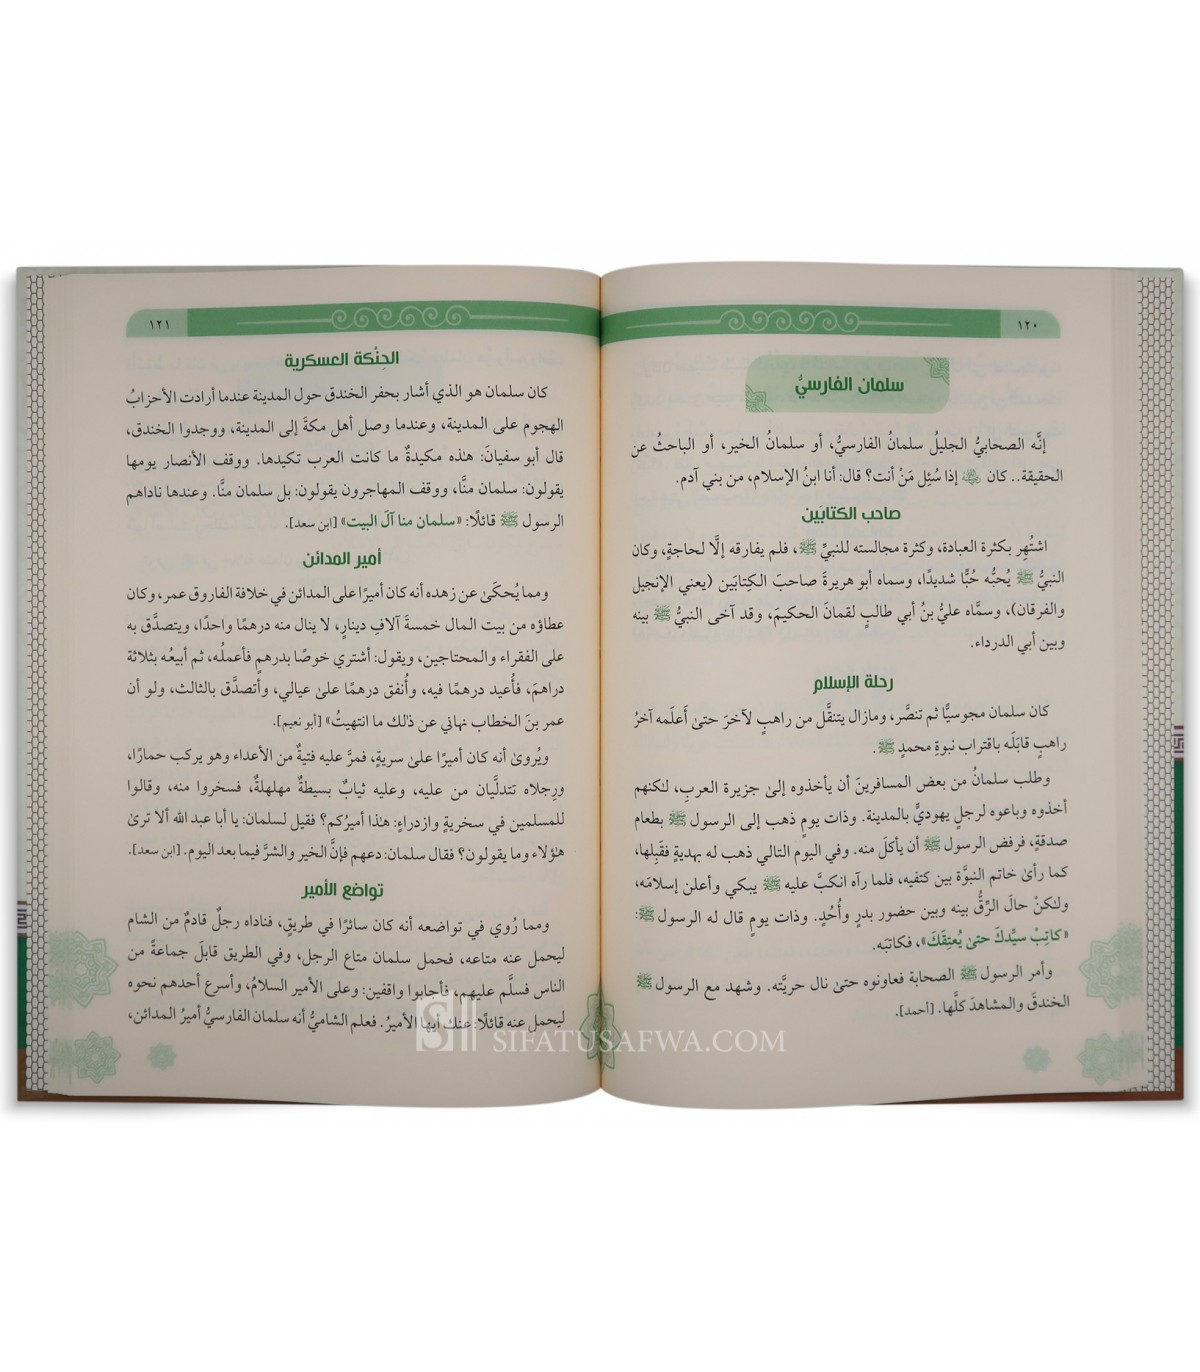 ١٢٠
سلمان الفارسيُّ
إنَّه الصحابيُّ الجليلُ سلمانُ الفارسيُّ، أو سلمانُ الخير، أو الباحثُ عن
الحقيقة.. كان ﷺ إذا سُئِل مَنْ أنت؟ قال: أنا ابنُ الإسلام، من بني آدم.
صاحب الكتابَين
اشتُهِر بكثرة العبادة، وكثرة مجالسته للنبيِّ ﷺ، فلم يفارقه إلَّا لحاجةٍ، وكان
النبيُّ ﷺ يُحبُّه حُبًّا شديدًا، وسماه أبو هريرةَ صاحبَ الكِتابَين (يعني الإنجيل
والفرقان)، وسمَّاه عليُّ بنُ أبي طالبٍ لقمانَ الحكيمَ، وقد آخى النبيُّ ﷺ بينه
وبين أبي الدرداء.
رحلة الإسلام
كان سلمان مجوسيًّا ثم تنصَّر، ومازال يتنقَّل من راهبٍ لآخرَ حتىٰ أَعلَمه آخرُ
راهبٍ قابَلَه باقتراب نبوةِ محمدٍ ﷺ.
وطلب سلمانُ من بعض المسافرينَ أن يأخذوه إلىٰ جزيرة العربِ، لٰكنهم
أخذوه وباعوه لرجلٍ يهوديٍّ بالمدينة. وذات يومٍ ذهب إلى الرسول ﷺ بطعام
صدقةٍ، فرفض الرسول ﷺ أن يأكلَ منه. وفي اليوم التالي ذهب له بهديةٍ فقَبِلها،
كما رأىٰ خاتم النبوَّة بين كتفيه، فلما رآه انكبَّ عليه ﷺ يبكي وأعلن إسلامَه،
ولٰكنْ حالَ الرِّقُّ بينه وبين حضور بدرٍ وأُحُدٍ. وذات يومٍ قال له الرسول ﷺ:
«كاتِبْ سيِّدكَ حتىٰ يُعتِقَكَ»، فكاتبَه.
وأمر الرسول ﷺ الصحابة فعاونوه حتىٰ نال حريَّته. وشهد مع الرسول ﷺ
الخندقَ والمشاهدَ كلَّها. [أحمد].
١٢١
الحِنْكة العسكرية
كان سلمان هو الذي أشار بحفر الخندق حول المدينة عندما أرادت الأحزابُ
الهجوم على المدينة، وعندما وصل أهل مكةَ إلى المدينة، ووجدوا الخندق،
قال أبو سفيانَ: هٰذه مكيدةٌ ما كانت العرب تكيدها. ووقف الأنصار يومها
يقولون: سلمان منَّا، ووقف المهاجرون يقولون: بل سلمان منَّا. وعندها ناداهم
الرسول ﷺ قائلًا: «سلمان منا آلَ البيت» [ابن سعد].
أمير المدائن
ومما يُحكَىٰ عن زهده أنه كان أميرًا على المدائن في خلافة الفاروق عمر، وكان
عطاؤه من بيت المال خمسةَ آلافِ دينارٍ، لا ينال منه درهمًا واحدًا، ويتصدَّق به
على الفقراء والمحتاجين، ويقول: أشتري خوصًا بدرهمٍ فأعملُه، ثم أبيعُه بثلاثة
دراهمَ، فأُعيد درهمًا فيه، وأُنفق درهمًا علىٰ عيالي، وأتصدَّق بالثالث، ولو أن
عمر بنَ الخطاب نهاني عن ذٰلك ما انتهيتُ» [أبو نعيم].
ويُروىٰ أنه كان أميرًا علىٰ سريةٍ، فمرَّ عليه فتيةٌ من الأعداء وهو يركب حمارًا،
ورِجلاه تتدلَّيان من عليه، وعليه ثيابٌ بسيطةٌ مهلهلةٌ، فسخروا منه، وقالوا
للمسلمين في سخريةٍ وازدراءٍ: هٰذا أميرُكم؟ فقيل لسلمان: يا أبا عبد الله ألا ترىٰ
هٰؤلاء وما يقولون؟ فقال سلمان: دعهم فإنَّ الخير والشرَّ فيما بعد اليوم. [ابن سعد].
تواضع الأمير
ومما رُوي في تواضعه أنه كان سائرًا في طريقٍ، فناداه رجلٌ قادمٌ من الشام
ليحمل عنه متاعه، فحمل سلمان متاع الرجل، وفي الطريق قابلَ جماعةً من
الناس فسلَّم عليهم، فأجابوا واقفين: وعلى الأمير السلامُ، وأسرع أحدهم نحوه
ليحمل عنه قائلًا: عنك أيها الأميرُ. فعلم الشاميُّ أنه سلمان الفارسيُّ أميرُ المدائن،
SIFATUSAFWA.COM